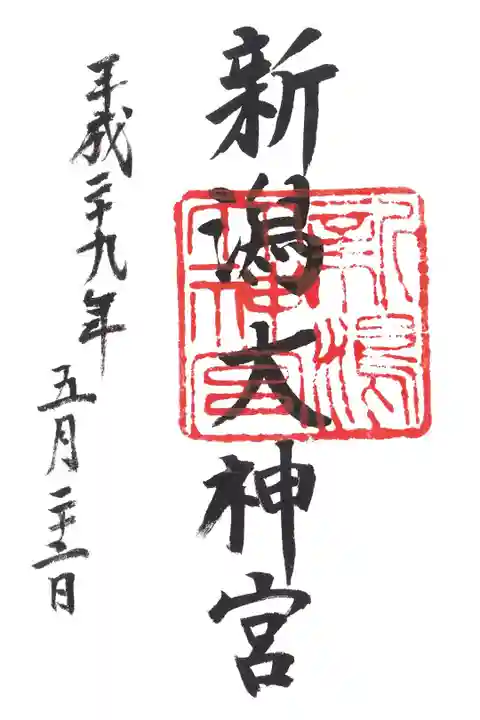 新潟大神宮
新潟
大神宮
平成二十九年
五月二十二日